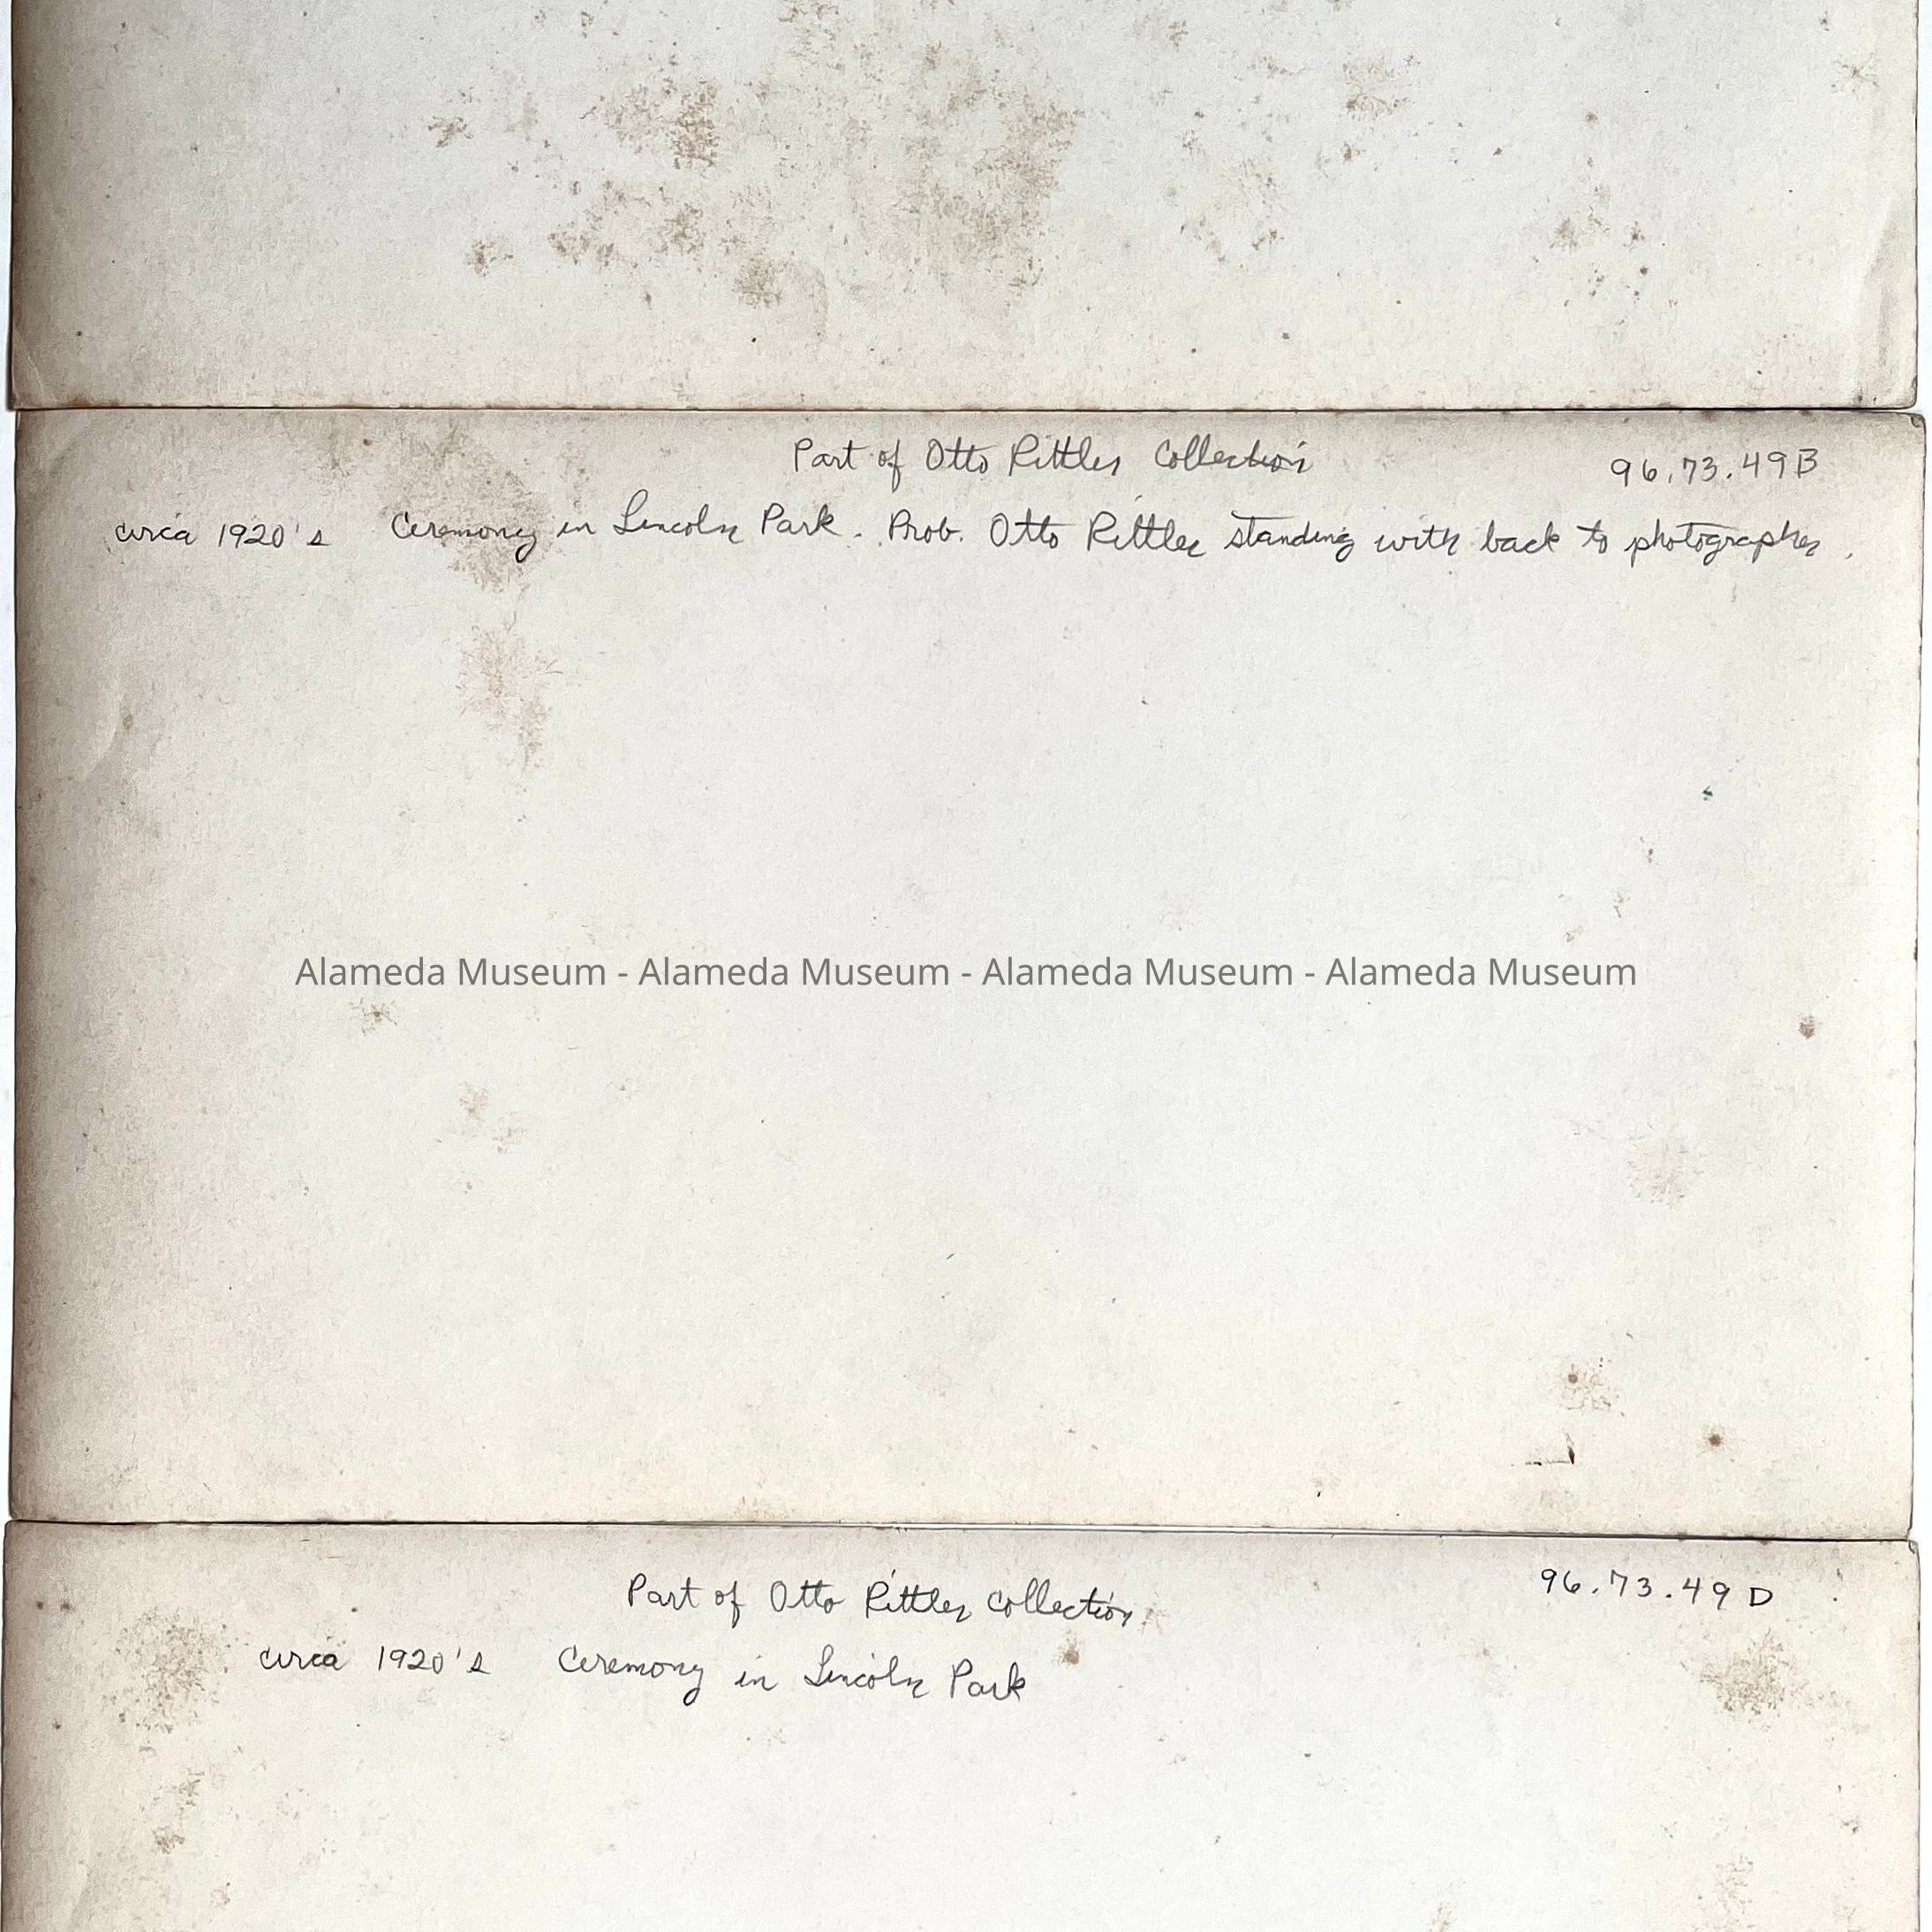 Part of Otto Rittler Collection 96.73.49B
circa 1920's Ceremony in Lincoln Park. Prob. Otto Rittler standing with back to photographer.
Alameda Museum - Alameda Museum - Alameda Museum - Alameda Museum
Part of Otto Rittler Collection 96.73.49D
circa 1920's Ceremony in Lincoln Park